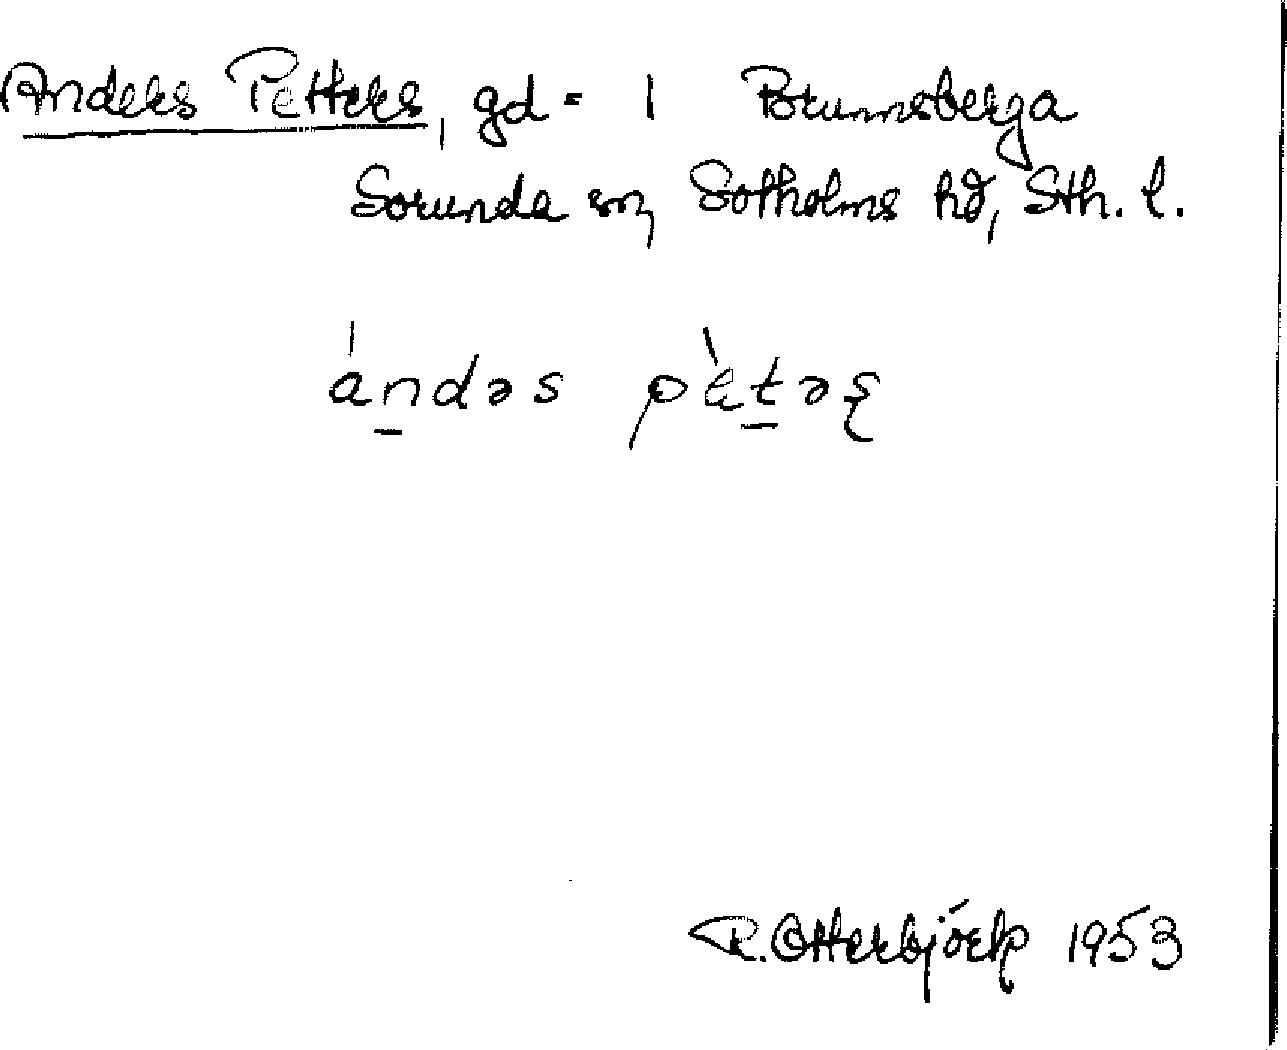 Anders Petters, gd = 1 Brunnsberga
Sorunda sn, Sotholms hd, Sth. l.
ándəs pètəʂ
R. Otterbjörk 1953